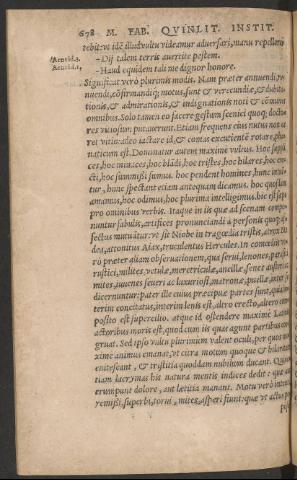 678 M. FAB. QVINLIT. INSTIT.
tebit: vt idẽ illud vultu videamur aduersari, manu repellere.
Aeneid.3. -Dij talem terris auertite pestem.
Aeneid.1. -Haud equidem tali me dignor honore.
Significat verò plurimis modis. Nam præter annuendi, re
nuendi, cõfirmandiq; motus, sunt & verecundiæ, & dubita
tionis, & admirationis, & indignationis noti & cõmunes
omnibus. Solo tamen eo facere gestum scenici quoq; docto
res vitiosum putauerunt. Etiam frequens eius nutus non ca
ret vitio: adeo iactare id, & comas excutientẽ rotare, pha
naticum est. Dominatur autem maximè vultus. Hoc suppli
ces, hoc minaces, hoc blãdi, hoc tristes, hoc hilares, hoc ere
cti, hoc summissi sumus. hoc pendent homines, hunc intuẽ
tur, hunc spectant etiam antequam dicamus. hoc quosdam
amamus, hoc odimus, hoc plurima intelligimus, hic est sæpe
pro omnibus verbis. Itaque in iis quæ ad scenam compo-
nuntur fabulis, artifices pronunciandi à personis quoq; af-
fectus mutuãtur: vt sit Niobe in tragœdia tristis, atrox Me
dea, attonitus Aiax, truculentus Hercules. In comœdiis ve
rò præter aliam obseruationem, qua serui, lenones, parasiti
rustici, milites, vetulæ, meretriculæ, ancillæ, senes austeri ac
mites, iuuenes seueri ac luxuriosi, matronæ, puellæ inter se
discernuntur: pater ille cuius præcipuæ partes sunt, quia in
terim concitatus, interim lenis est, altero erecto, altero com
posito est supercilio. atque id ostendere maximè latus
actoribus moris est, quod cum iis quas agunt partibus con
gruat. Sed ipso vultu plurimùm valent oculi, per quos ma
xime animus emanat, vt citra motum quoque & hilaritate
enitescant, & tristitia quoddam nubilum ducant. Quin e
tiam lacrymas his natura mentis indices dedit: quæ aut
erumpunt dolore, aut lætitia manant. Motu verò intenti,
remissi, superbi, torui, mites, asperi fiunt: quæ vt actus po